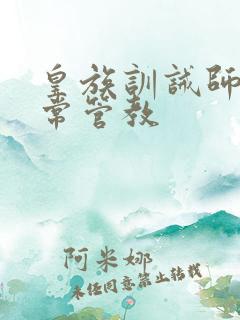 皇族訓誡師
常管教
阿米娜
未经同意禁止转载